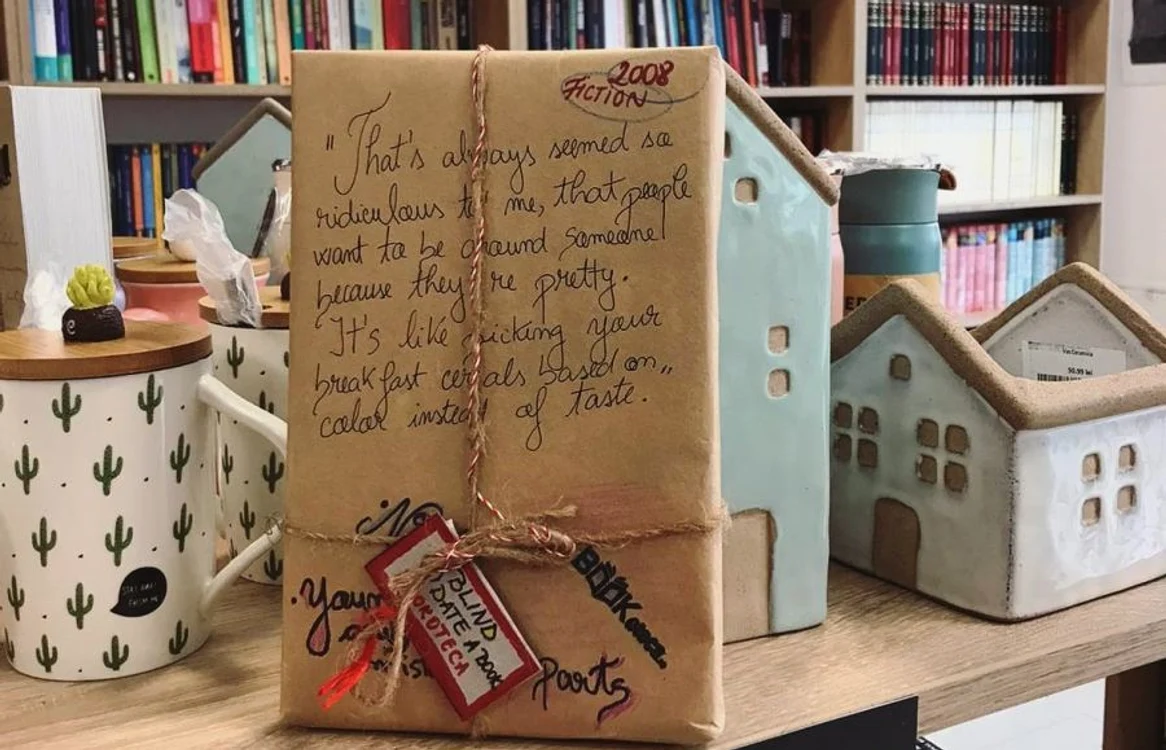 2008
FICTION
"That's always seemed so
ridiculous to me, that people
want to be around someone
because they're pretty.
It's like picking your
breakfast cereals based on
color instead of taste."
BLIND
DATE A BOOK
BOOK
Parts
50.99 lei